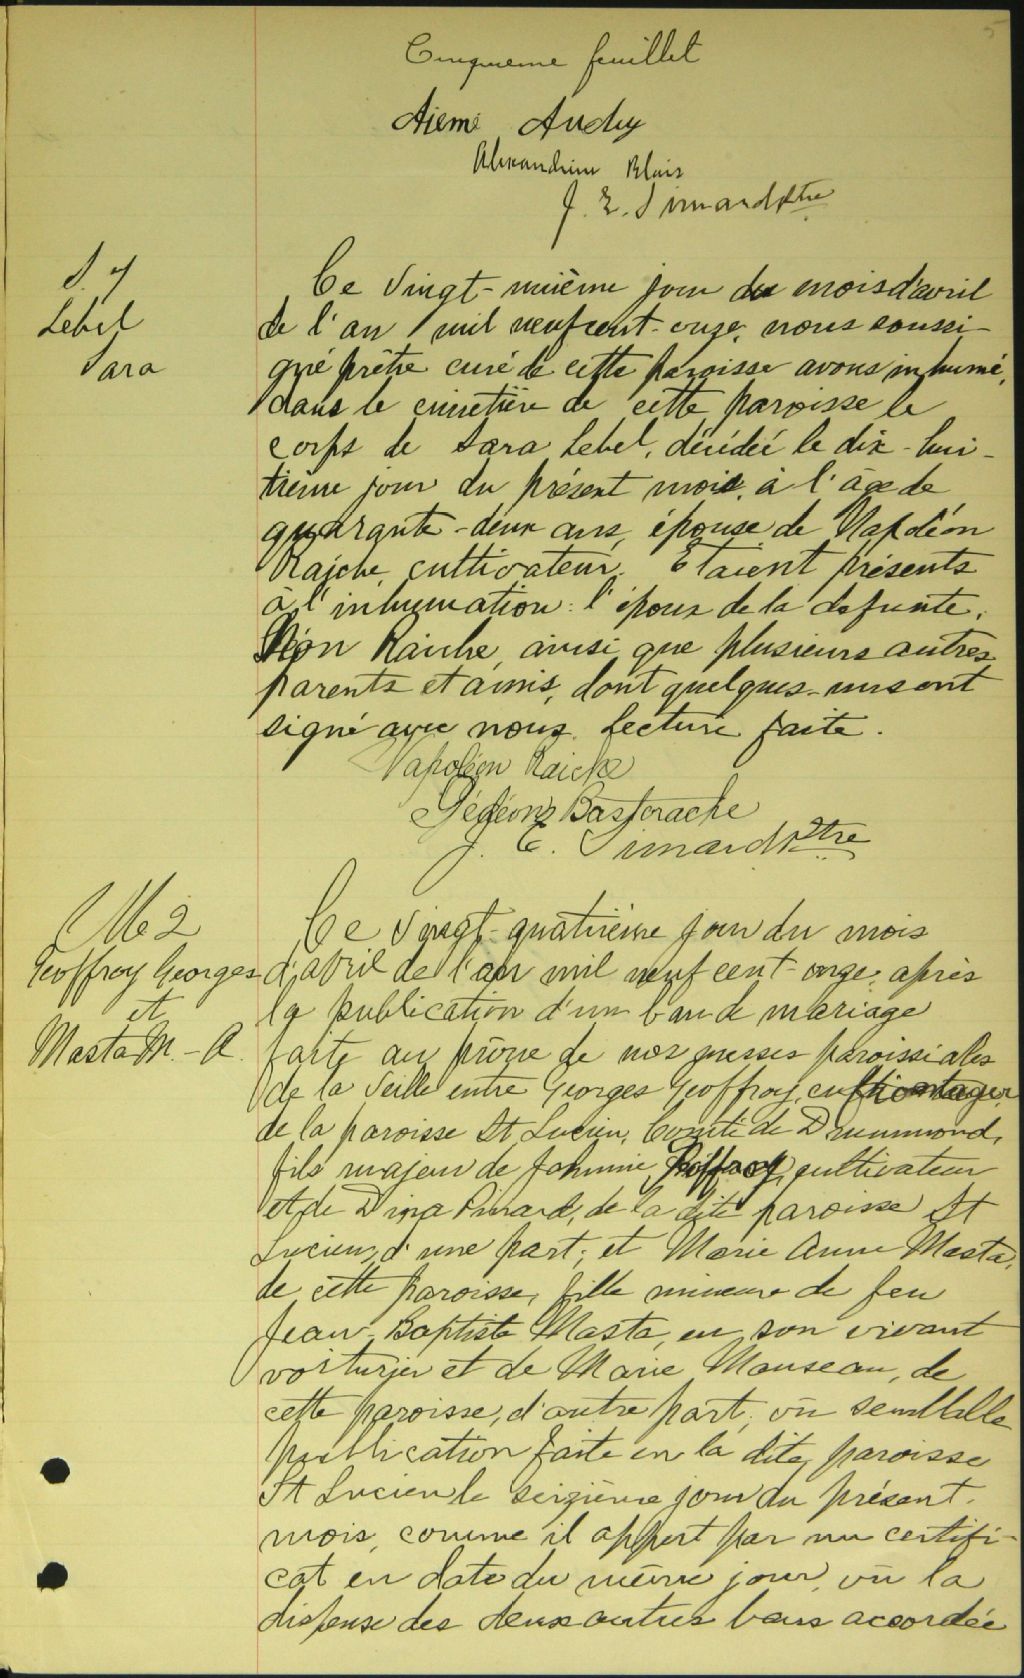 5
Cinquieme feuillet
Aiemé Audy
Alexandrine Blais
J. E. Simard Ptre
S. 7
Lebel
Sara
Ce vingt-unième jour du mois d'avril
de l'an mil neuf cent-onze, nous soussi-
gné prêtre curé de cette paroisse avons inhumé,
dans le cimetière de cette paroisse le
corps de Sara Lebel, décédée le dix-hui-
tième jour du présent mois, à l'âge de
quarante-deux ans, épouse de Napoléon
Raiche, cultivateur. Etaient présents
à l'inhumation: l'époux de la defunte,
Léon Raiche, ainsi que plusieurs autres
parents et amis, dont quelques-uns ont
signé avec nous. Lecture faite.
Napoléon Raiche
Gédéon Bastarache
J. E. Simard Ptre
M 2
Geoffroy Georges
et
Masta M.-A.
Ce vingt-quatrième jour du mois
d'avril de l'an mil neuf cent-onze, après
la publication d'un ban de mariage
faite au prône de nos messes paroissiales
de la veille entre Georges Geoffroy,
de la paroisse St Lucien, Comté de Drummond,
fils majeur de Johnnie Geoffroy, cultivateur
et de Dina Pinard, de la dite paroisse St
Lucien, d'une part; et Marie Anne Masta,
de cette paroisse, fille mineure de feu
Jean-Baptiste Masta, en son vivant
voiturier et de Marie Manseau, de
cette paroisse, d'autre part; vû semblable
publication faite en la dite paroisse
St Lucien le seizième jour du présent
mois, comme il appert par un certifi-
cat en date du même jour, vû la
dispense des deux autres bans accordée